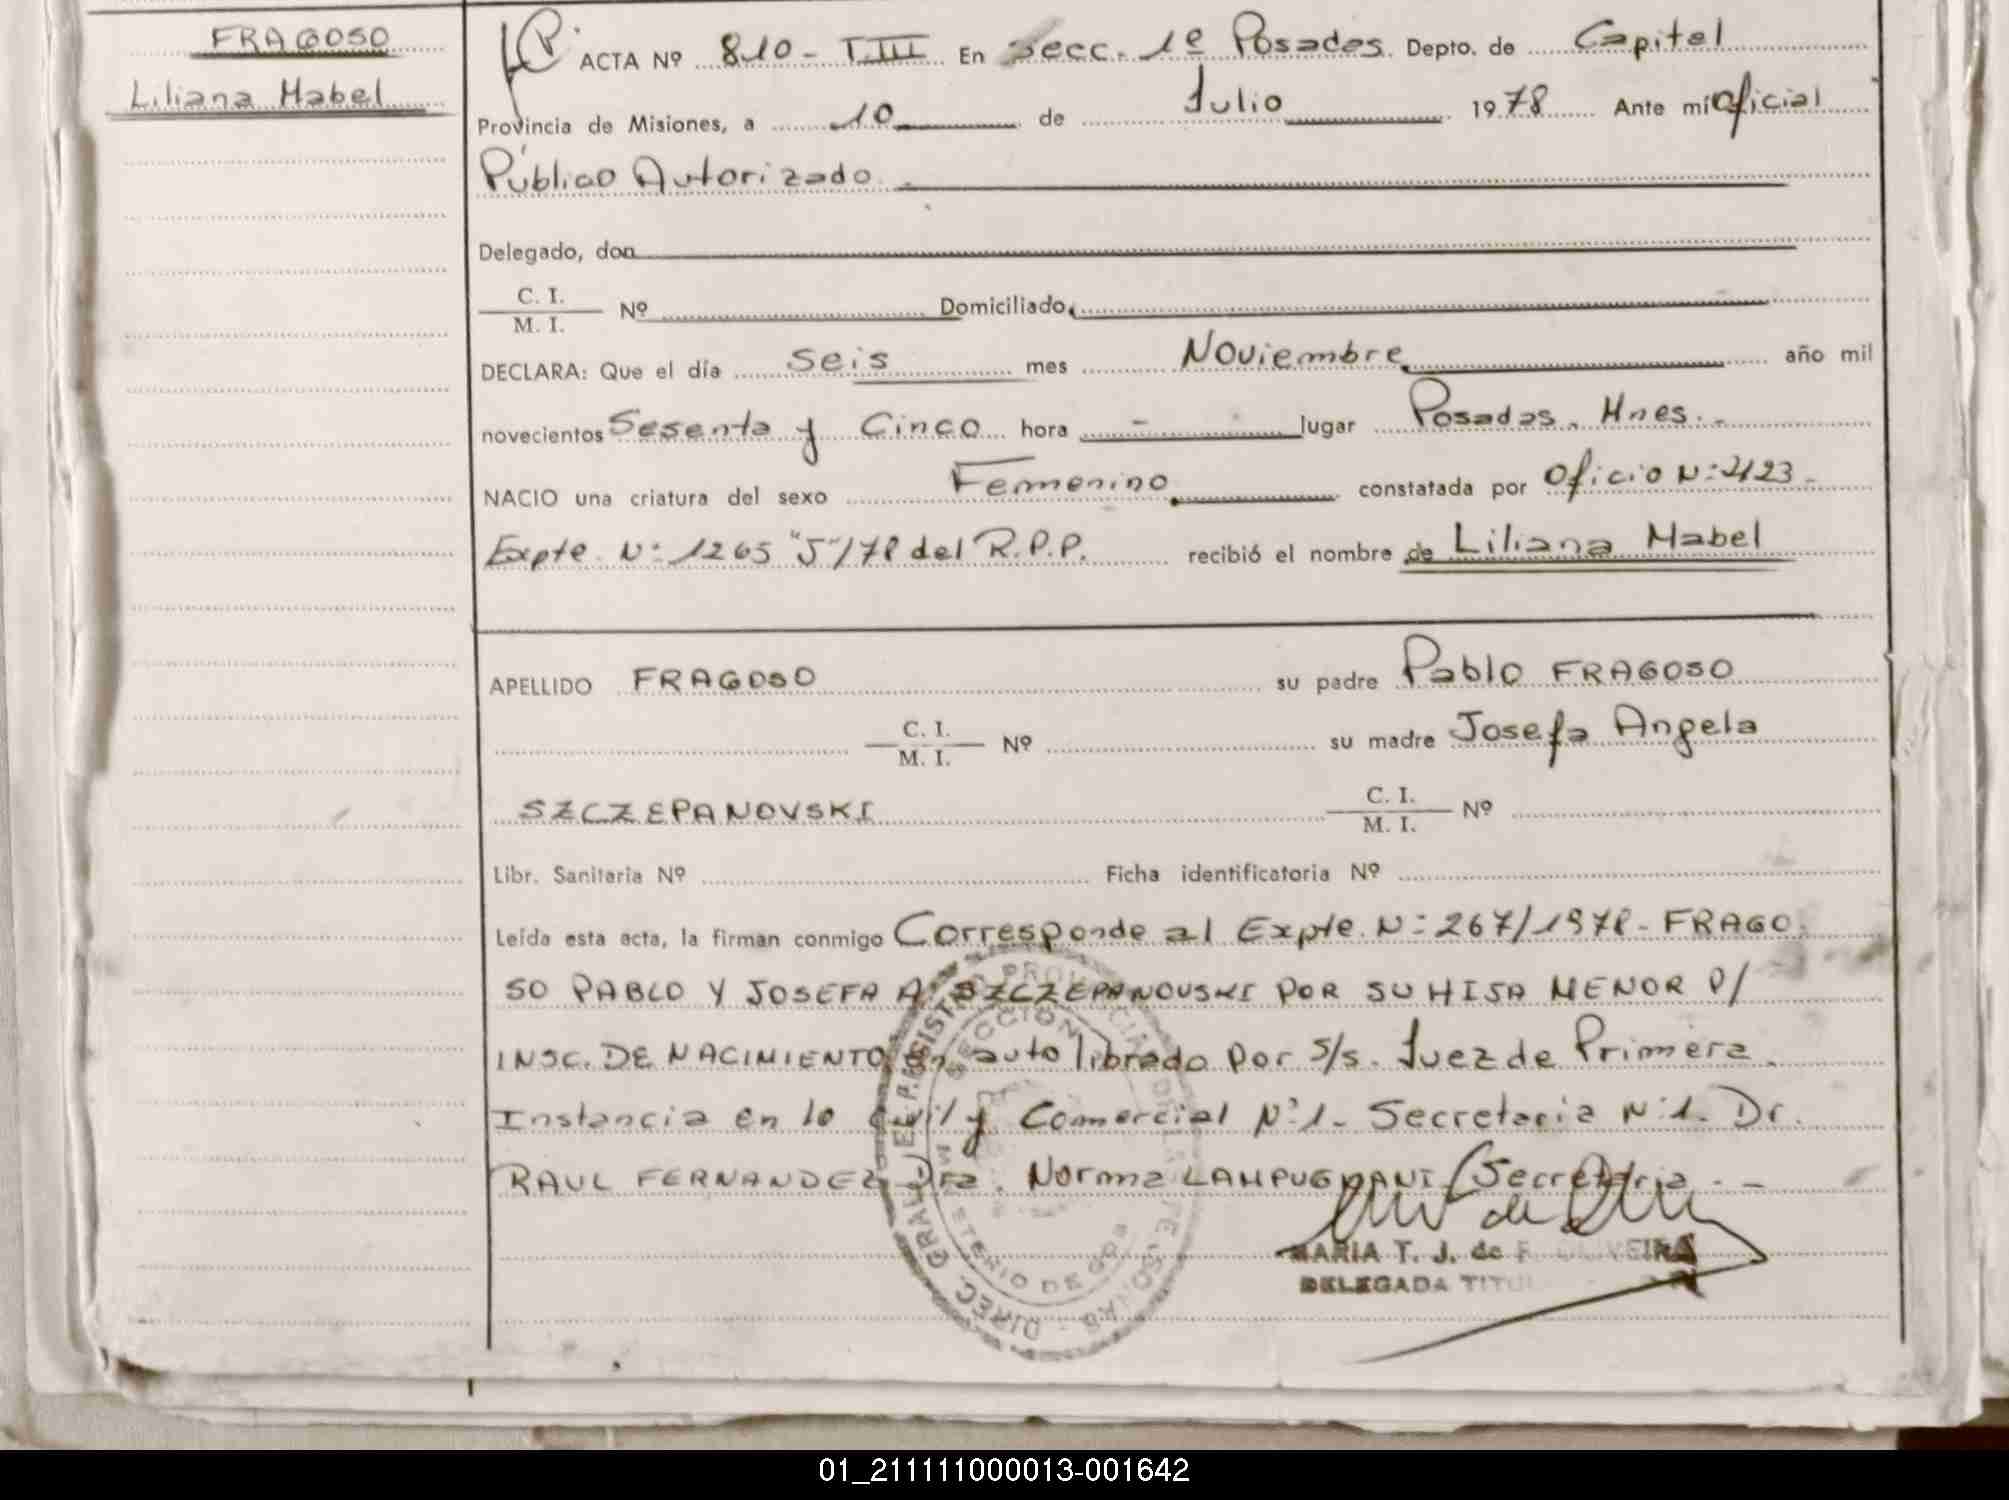 FRAGOSO
Liliana Mabel
ACTA Nº 810 - T.III En Secc. 1º Posadas. Depto. de Capital
Provincia de Misiones, a 10 de Julio 1978 Ante mí Oficial
Público Autorizado.
Delegado, don
C. I.
M. I. Nº Domiciliado
DECLARA: Que el día Seis mes Noviembre año mil
novecientos Sesenta y Cinco hora - lugar Posadas, Mnes. -
NACIO una criatura del sexo Femenino constatada por Oficio N: 2123 -
Expte. N: 1265 "J"/78 del R.P.P. recibió el nombre de Liliana Mabel
APELLIDO FRAGOSO su padre Pablo FRAGOSO
C. I.
M. I. Nº su madre Josefa Angela
SZCZEPANOVSKI C. I.
M. I. Nº
Libr. Sanitaria Nº Ficha identificatoria Nº
Leída esta acta, la firman conmigo Corresponde al Expte. N: 267/1978 - FRAGO
SO PABLO Y JOSEFA A. SZCZEPANOVSKI POR SU HIJA MENOR P/
INSC. DE NACIMIENTO en auto librado por S/s. Juez de Primera
Instancia en lo Civil y Comercial N: 1 - Secretaria N: 1. Dr.
RAUL FERNANDEZ - Dra. Norma LAMPUGNANI (Secretaria. -
MARIA T. J. de F. OLIVEIRA
DELEGADA TITU
DIREC. GRAL. DEL REGISTRO PROVINCIAL DE LAS PERSONAS
SECCION
MINISTERIO DE GOB
01_211111000013-001642